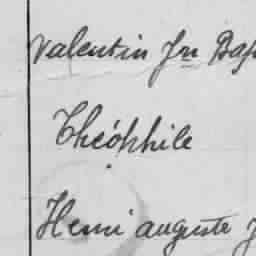 Valentin Jn Bap
Théophile
Henri auguste J